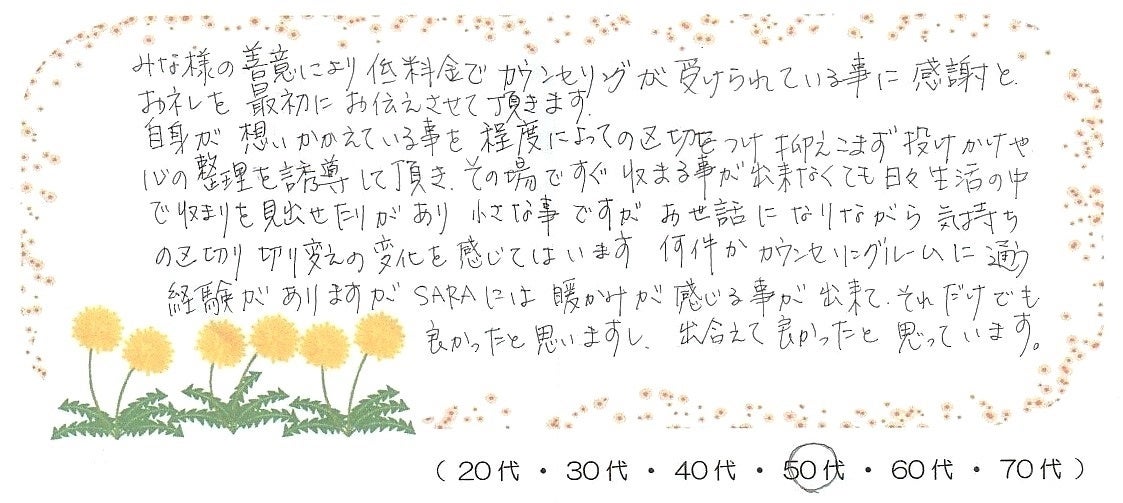 みな様の善意により低料金でカウンセリングが受けられている事に感謝と
お礼を最初にお伝えさせて頂きます.
自身が想いかかえている事を程度によっての区切をつけ抑えこまず投げかけや
心の整理を誘導して頂き、その場ですぐ収まる事が出来なくても日々生活の中
で収まりを見出せたりがあり小さな事ですがお世話になりながら気持ち
の区切り切り変えの変化を感じてはいます 何件かカウンセリングルームに通う
経験がありますがSARAには暖かみが感じる事が出来て、それだけでも
良かったと思いますし、出合えて良かったと思っています。
(20代・30代・40代・50代・60代・70代)